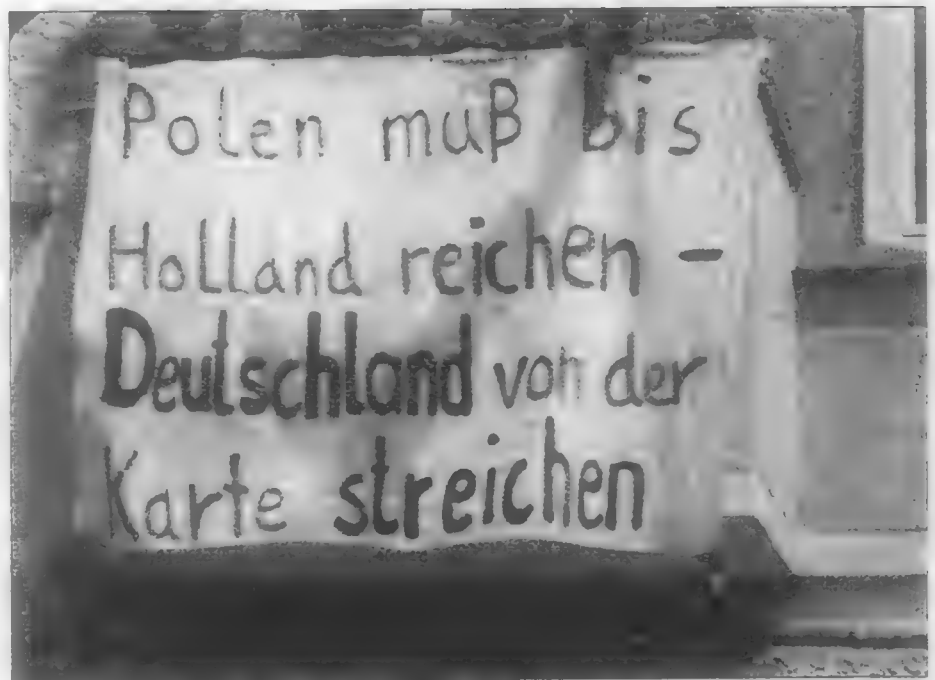 Polen muß bis
Holland reichen –
Deutschland von der
Karte streichen